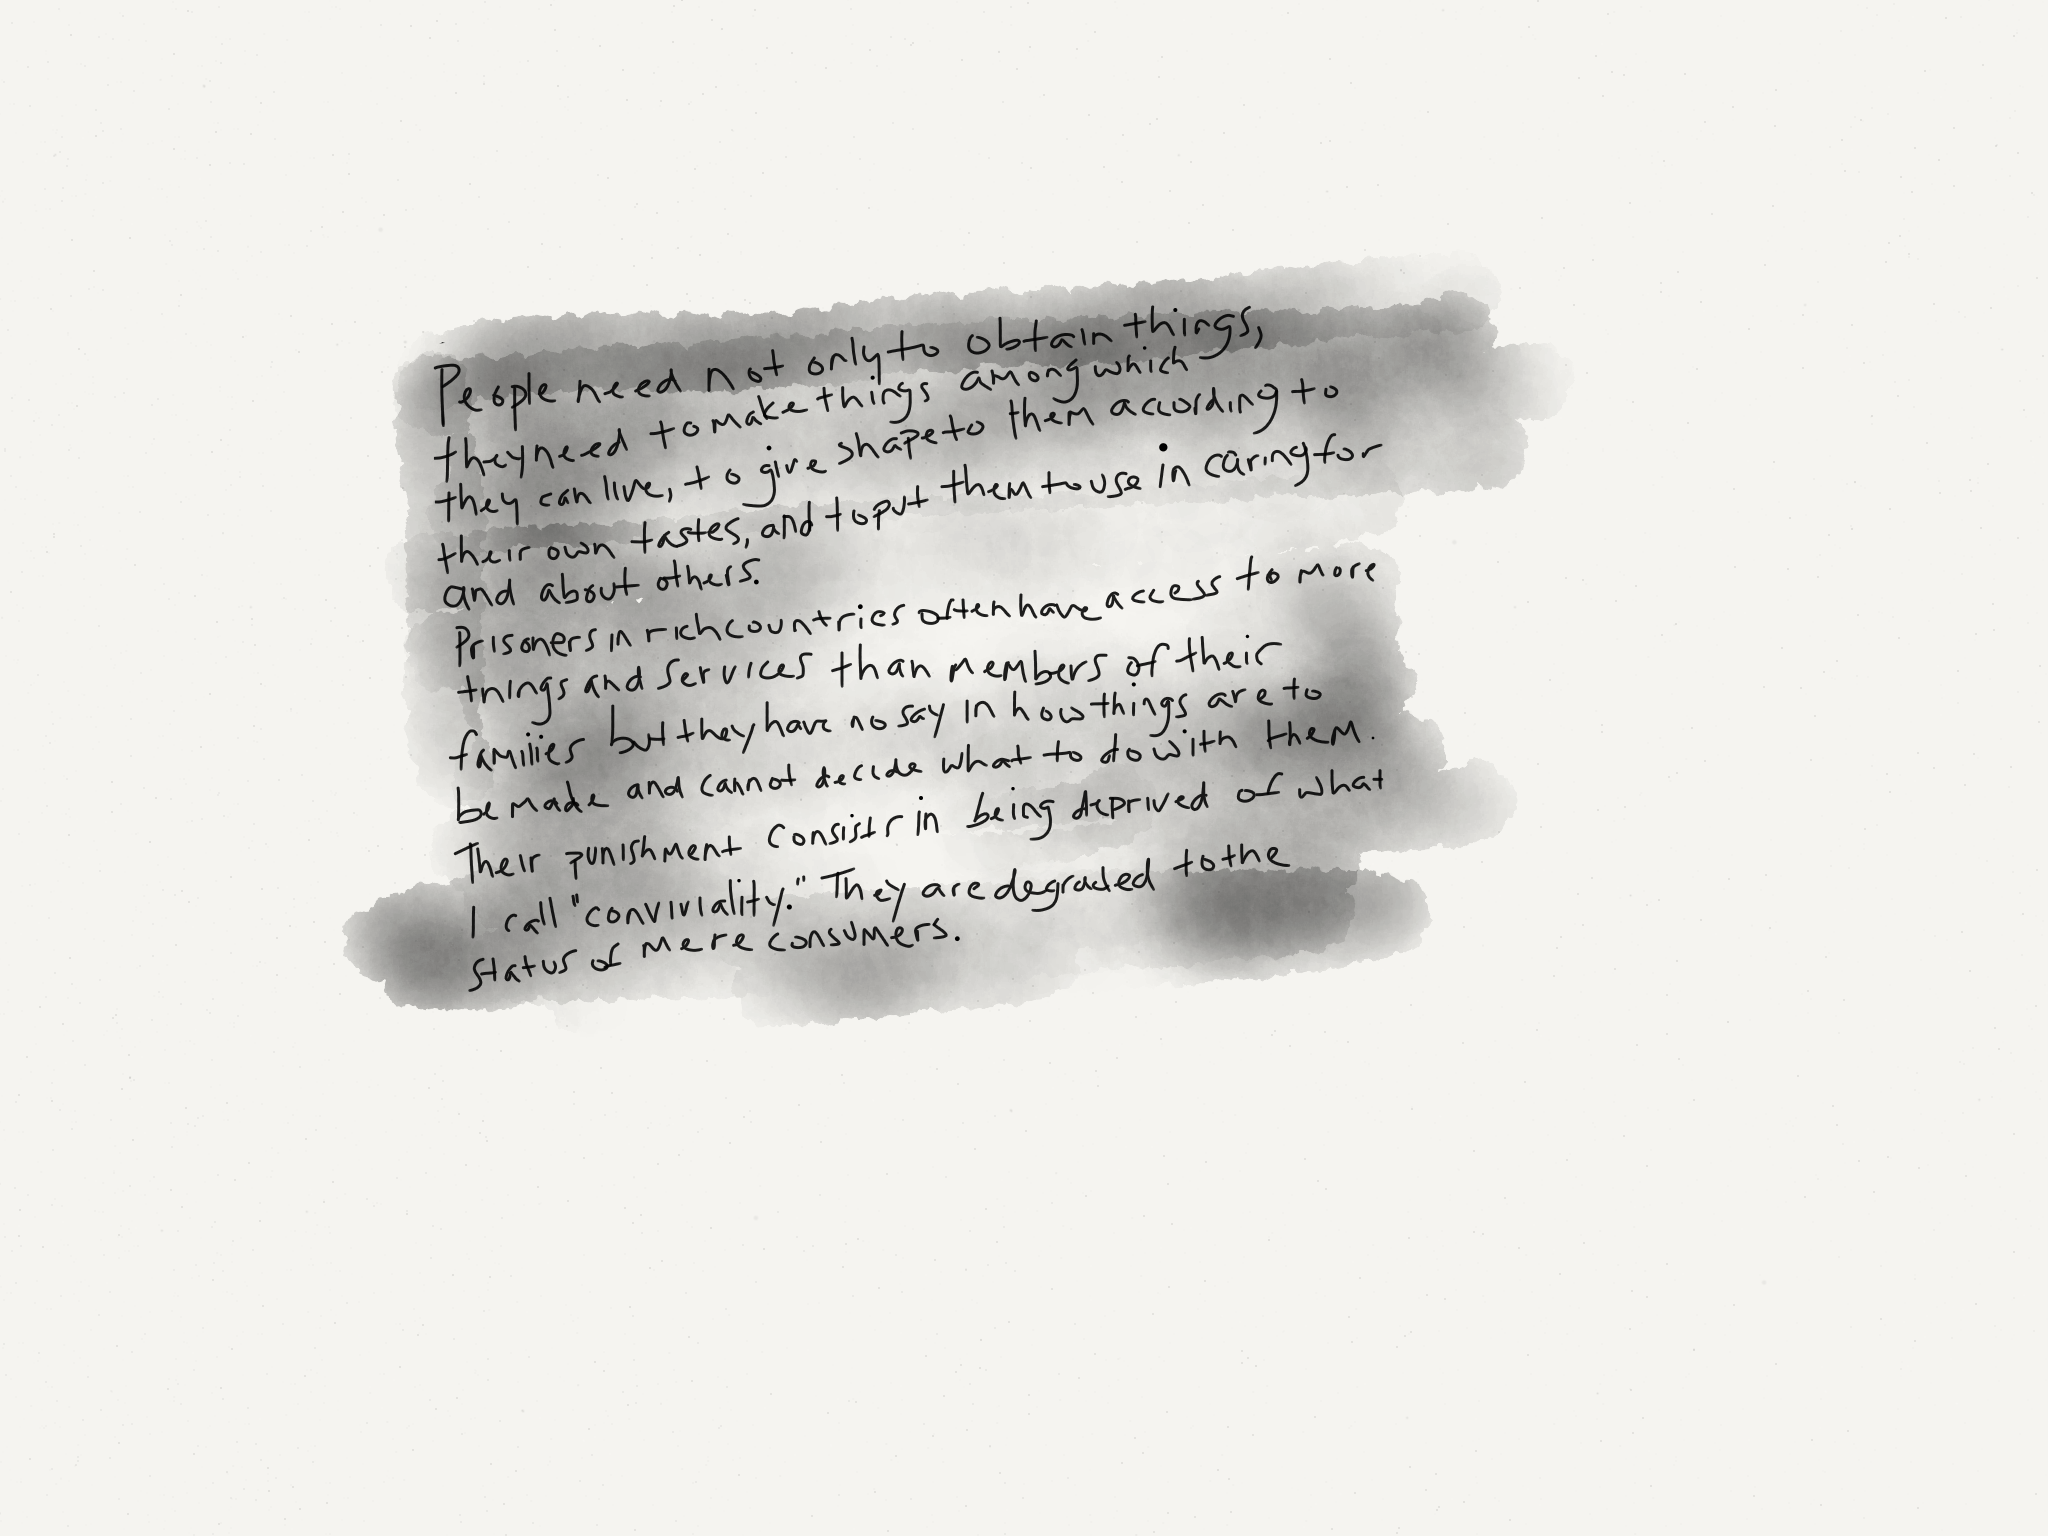 People need not only to obtain things,
they need to make things among which
they can live, to give shape to them according to
their own tastes, and to put them to use in caring for
and about others.
Prisoners in rich countries often have access to more
things and services than members of their
families but they have no say in how things are to
be made and cannot decide what to do with them.
Their punishment consists in being deprived of what
I call "conviviality." They are degraded to the
status of mere consumers.